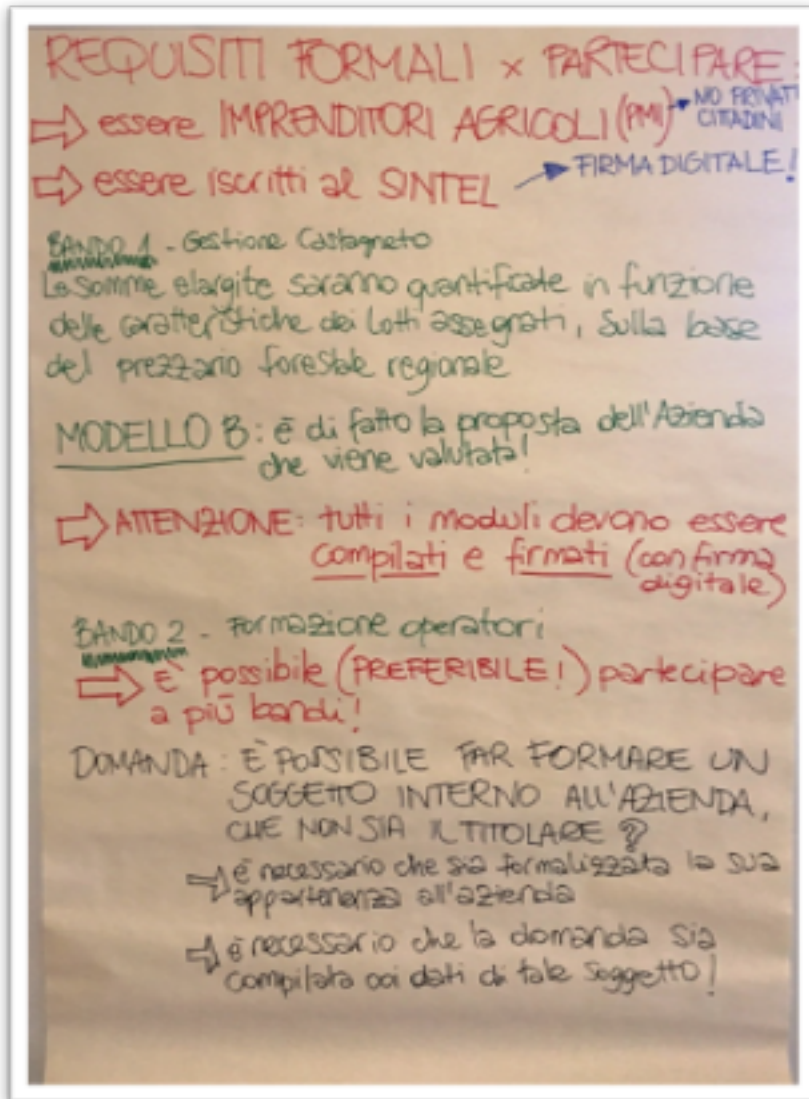 REQUISITI FORMALI x PARTECIPARE:
⇒ essere IMPRENDITORI AGRICOLI (PMI) → NO PRIVATI CITTADINI
⇒ essere iscritti al SINTEL → FIRMA DIGITALE!
BANDO 1 - Gestione Castagneto
Le somme elargite saranno quantificate in funzione
delle caratteristiche dei lotti assegnati, sulla base
del prezzario forestale regionale
MODELLO B: è di fatto la proposta dell'Azienda
che viene valutata!
⇒ ATTENZIONE: tutti i moduli devono essere
compilati e firmati (con firma
digitale)
BANDO 2 - Formazione operatori
⇒ È possibile (PREFERIBILE!) partecipare
a più bandi!
DOMANDA: È POSSIBILE FAR FORMARE UN
SOGGETTO INTERNO ALL'AZIENDA,
CHE NON SIA IL TITOLARE?
⇒ è necessario che sia formalizzata la sua
appartenenza all'azienda
⇒ è necessario che la domanda sia
compilata coi dati di tale soggetto!